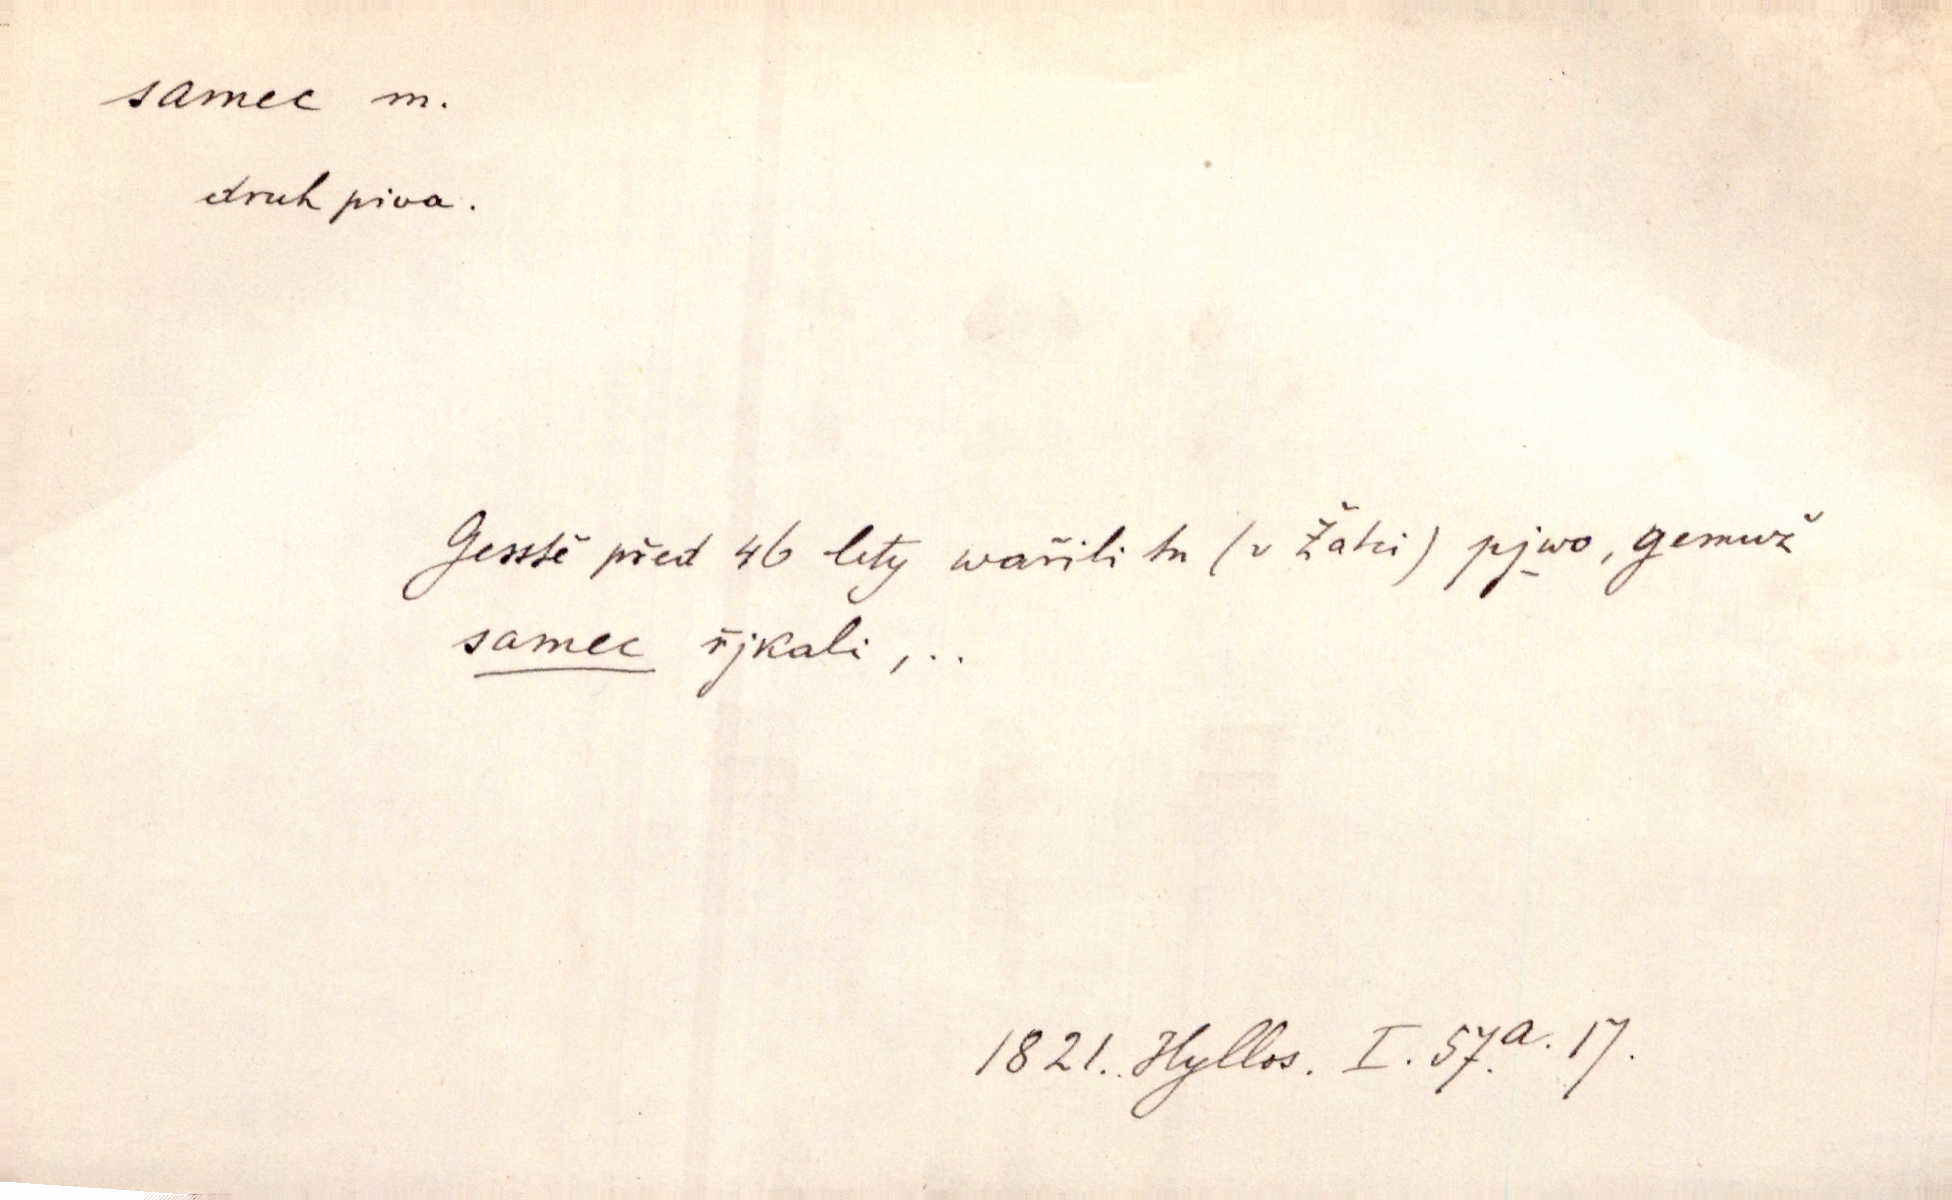 samec m.
druh piva.
Gesstě před 46 lety wařili tu (v Žatci) pjwo, gemuž
samec řjkali, ..
1821. Hyllos. I. 57.a. 17.